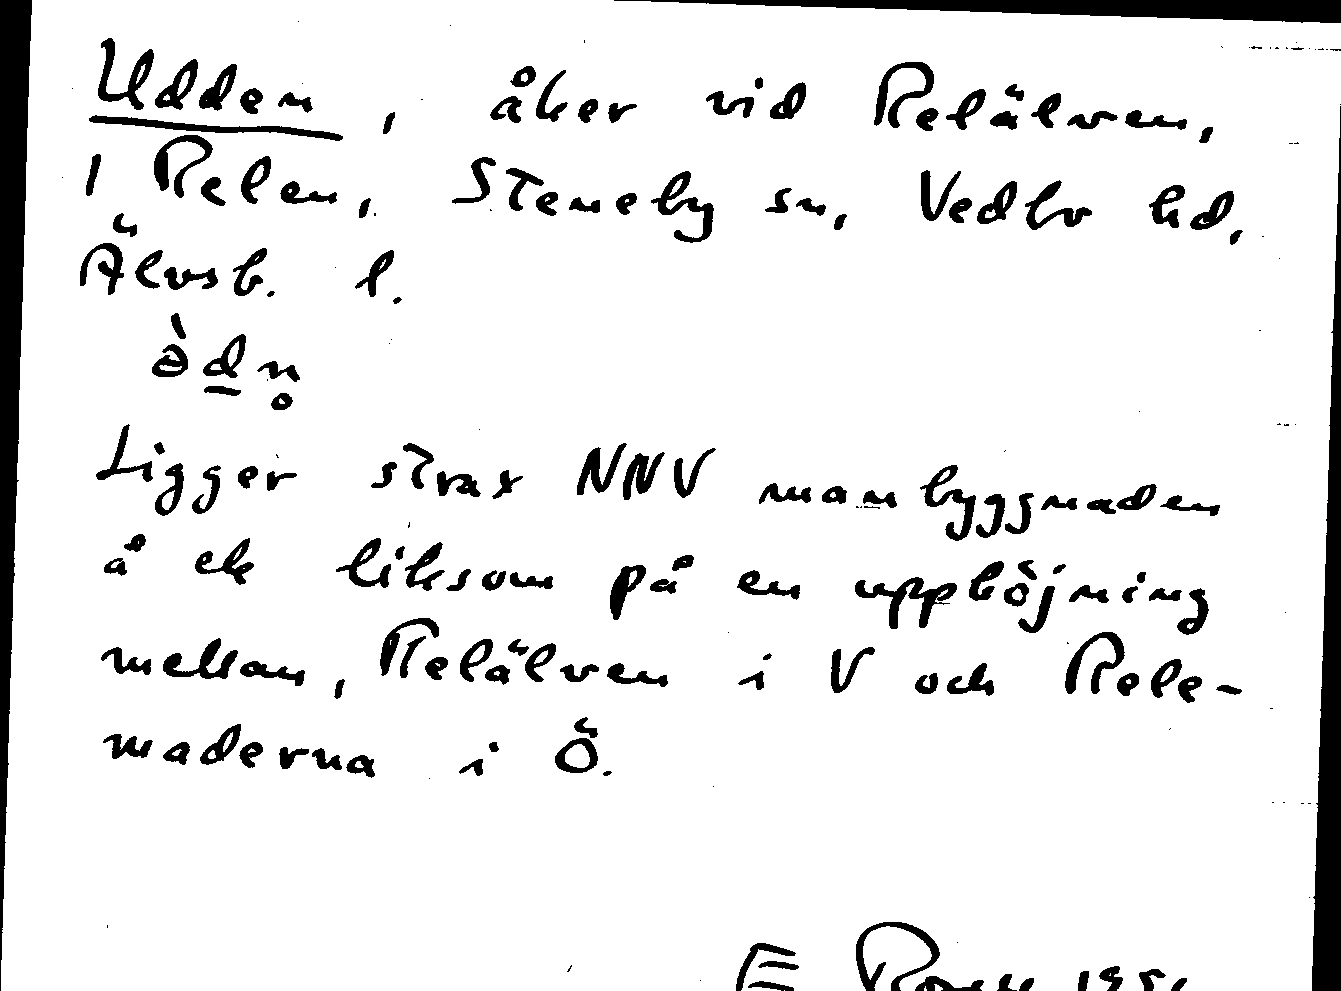 Udden, åker vid Relälven,
1 Relen, Steneby sn, Vedbo hd,
Älvsb. l.
ə̀dn̥
Ligger strax NNV manbyggnaden
å ek liksom på en upphöjning
mellan, Relälven i V och Rele-
maderna i Ö.
E